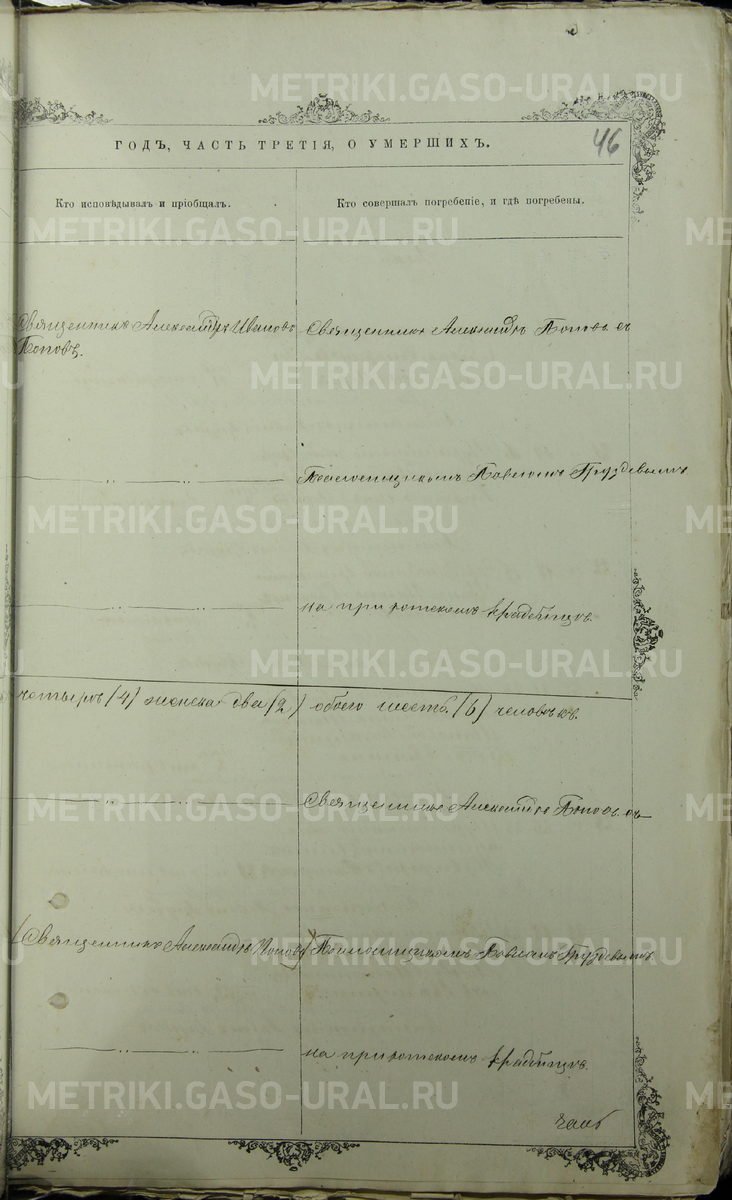 46
ГОДЪ, ЧАСТЬ ТРЕТІЯ, О УМЕРШИХЪ.
Кто исповѣдывалъ и пріобщалъ.
Кто совершалъ погребеніе, и гдѣ погребены.
Священникъ Александръ Ивановъ
Поповъ.
Священникъ Александръ Поповъ съ
Псаломщикомъ Павломъ Груздевымъ
на приходскомъ кладбищѣ.
четыре (4) женска два (2) обоего шесть (6) человѣкъ.
Священникъ Александръ Поповъ съ
Священникъ Александръ Поповъ
Псаломщикомъ Павломъ Груздевымъ
на приходскомъ кладбищѣ.
METRIKI.GASO-URAL.RU